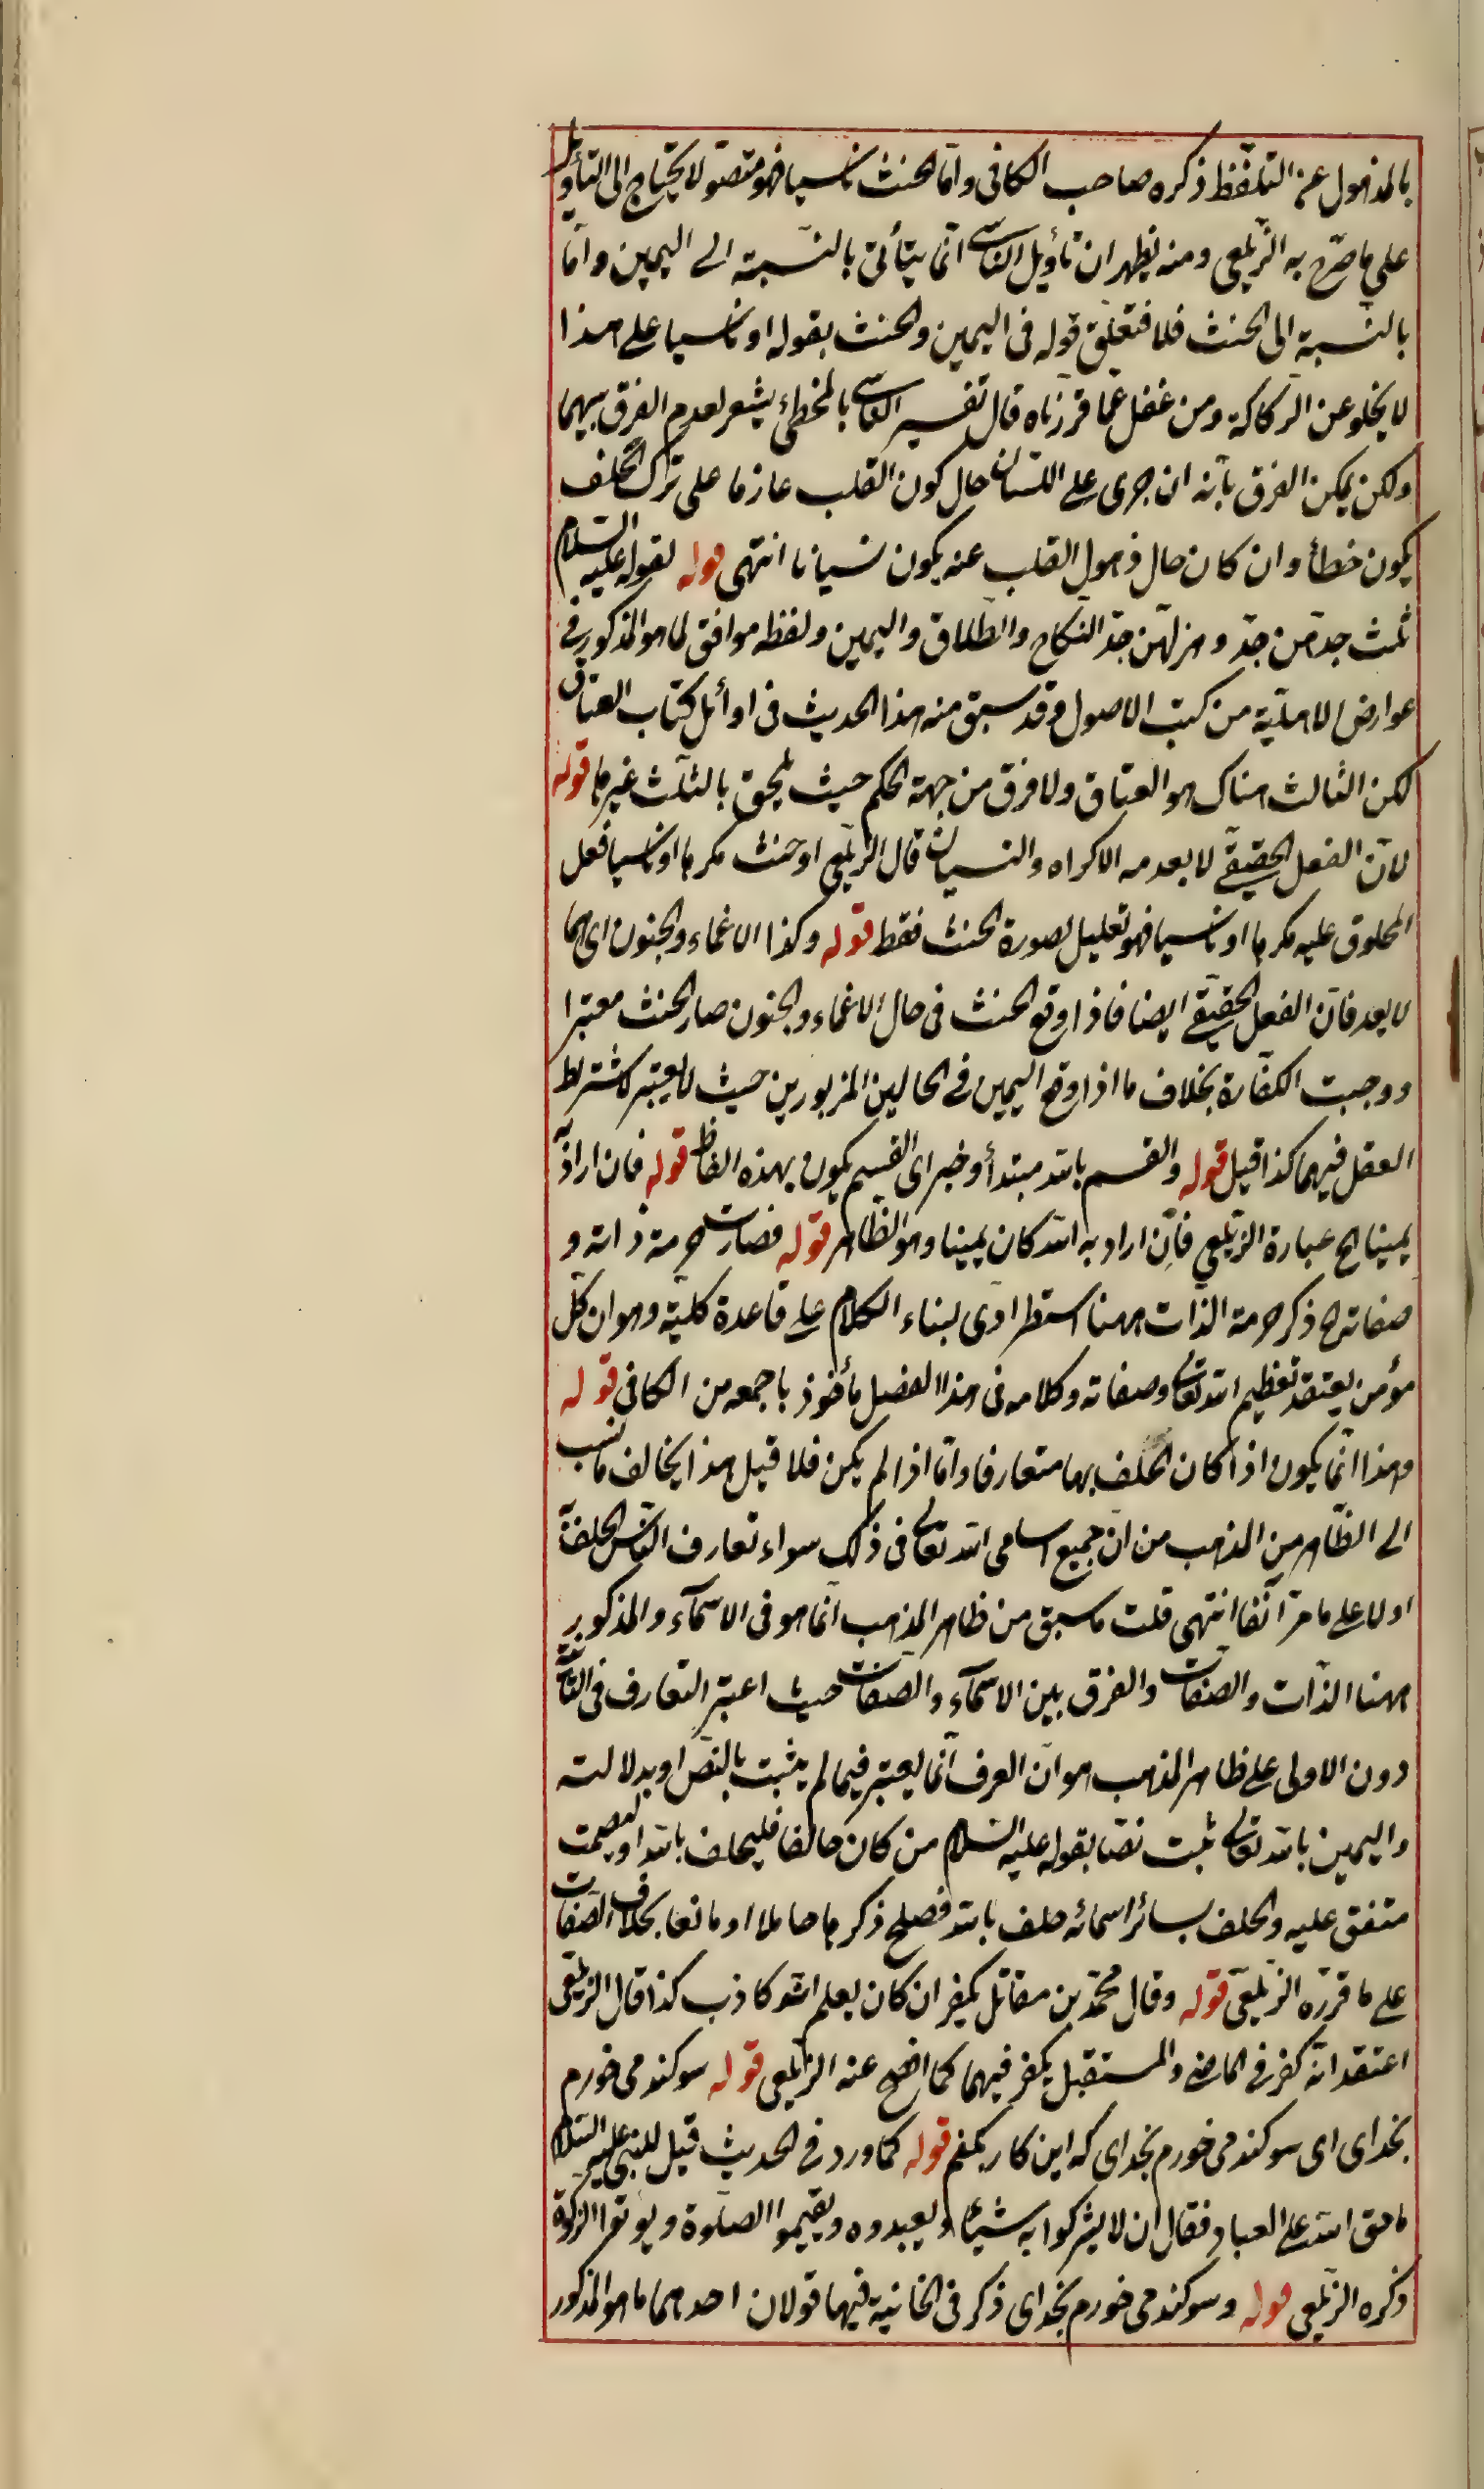 بالمذهول عن التلفظ ذكره صاحب الكافى واما الحنث ناسيا فهو متصوّر لا يحتاج الى التأويل
على ما صرّح به الزيلعى ومنه يظهر ان تأويل الناسى انما يتأتّى بالنسبة الى اليمين واما
بالنسبة الى الحنث فلا فتعلّق قوله فى اليمين والحنث بقوله او ناسيا على هذا
لا يخلو عن الركاكة ومن غفل عما قررناه قال تفسير الناسى بالمخطئ يشعر لعدم الفرق بينهما
ولكن يمكن الفرق بانه ان جرى على اللسان حال كون القلب عازما على ترك الحلف
يكون خطأ وان كان حال ذهول القلب عنه يكون نسيانا انتهى قوله لقوله عليه السلام
ثلث جدهن جد وهزلهن جد النكاح والطلاق واليمين ولفظه موافق لما هو المذكور فى
عوارض الاهلية من كتب الاصول وقد سبق منه هذا الحديث فى اوائل كتاب العتاق
لكن الثالث هناك هو العتاق ولا فرق من جهة الحكم حيث يلحق بالثلث غيرها قوله
لان الفعل الحقيقى لا يعدمه الاكراه والنسيان قال الزيلعى او حنث مكرها او ناسيا فعل
المحلوف عليه مكرها او ناسيا فهو تعليل لصورة الحنث فقط قوله وكذا الاغماء والجنون اى هما
لا يعدمان الفعل الحقيقى ايضا فاذا وقع الحنث فى حال الاغماء والجنون صار الحنث معتبرا
ووجبت الكفارة بخلاف ما اذا وقع اليمين فى الحالين المزبورين حيث لا يعتبر لاشتراط
العقل فيهما كذا قيل قوله والقسم بالله مبتدأ وخبر اى القسم يكون بهذه الفاظ قوله فان اراد به
يمينا الخ عبارة الزيلعى فان اراد به الله كان يمينا وهو الظاهر قوله فصارت حرمة ذاته و
صفاته الخ ذكر حرمة الذات ههنا استطرادى لبناء الكلام على قاعدة كلية وهو ان كل
مؤمن يعتقد تعظيم الله تعالى وصفاته وكلامه فى هذا الفصل مأخوذ باجمعه من الكافى قوله
وهذا انما يكون اذا كان الحلف بها متعارفا واما اذا لم يكن فلا قيل هذا يخالف ما نسب
الى الظاهر من المذهب من ان جميع اسامى الله تعالى فى ذلك سواء تعارف الناس الحلف به
اولا على ما مرّ آنفا انتهى قلت ما سبق من ظاهر المذهب انما هو فى الاسماء والمذكور
ههنا الذات والصفات والفرق بين الاسماء والصفات حيث اعتبر التعارف فى الثانية
دون الاولى على ظاهر المذهب هو ان العرف انما يعتبر فيما لم يثبت بالنص او بدلالته
واليمين بالله تعالى ثبت نصا بقوله عليه السلام من كان حالفا فليحلف بالله او ليصمت
متفق عليه والحلف بسائر اسمائه حلف بالله فصلح ذكرها حاملا او مانعا بخلاف الصفات
على ما قرره الزيلعى قوله وقال محمد بن مقاتل يكفر ان كان يعلم انه كاذب كذا قال الزيلعى
اعتقد انه كفر فى الماضى والمستقبل يكفر فيهما كما افصح عنه الزيلعى قوله سوكند مى خورم
بخداى اى سوكند مى خورم بخداى كه اين كار بكنم قوله كما ورد فى الحديث قيل للنبى عليه السلام
ما حق الله على العباد فقال ان لا يشركوا به شيئا ويعبدوه ويقيموا الصلوة ويوتوا الزكوة
ذكره الزيلعى قوله وسوكند مى خورم بخداى ذكر فى الخانية فيهما قولان احدهما ما هو المذكور